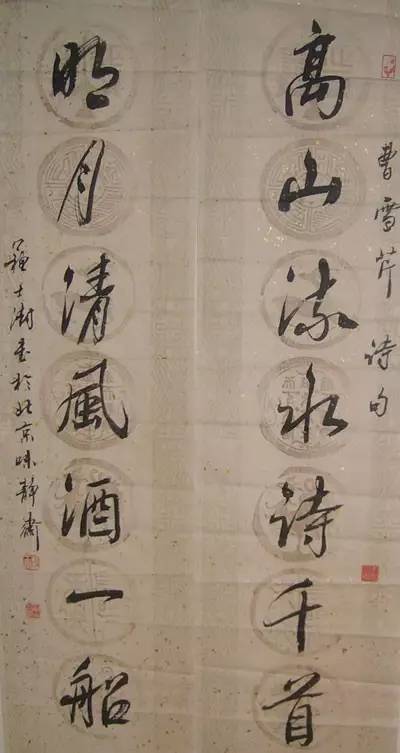 曹雪芹诗句
高山流水詩千首
明月清風酒一船
苏士澍书於北京味静斋